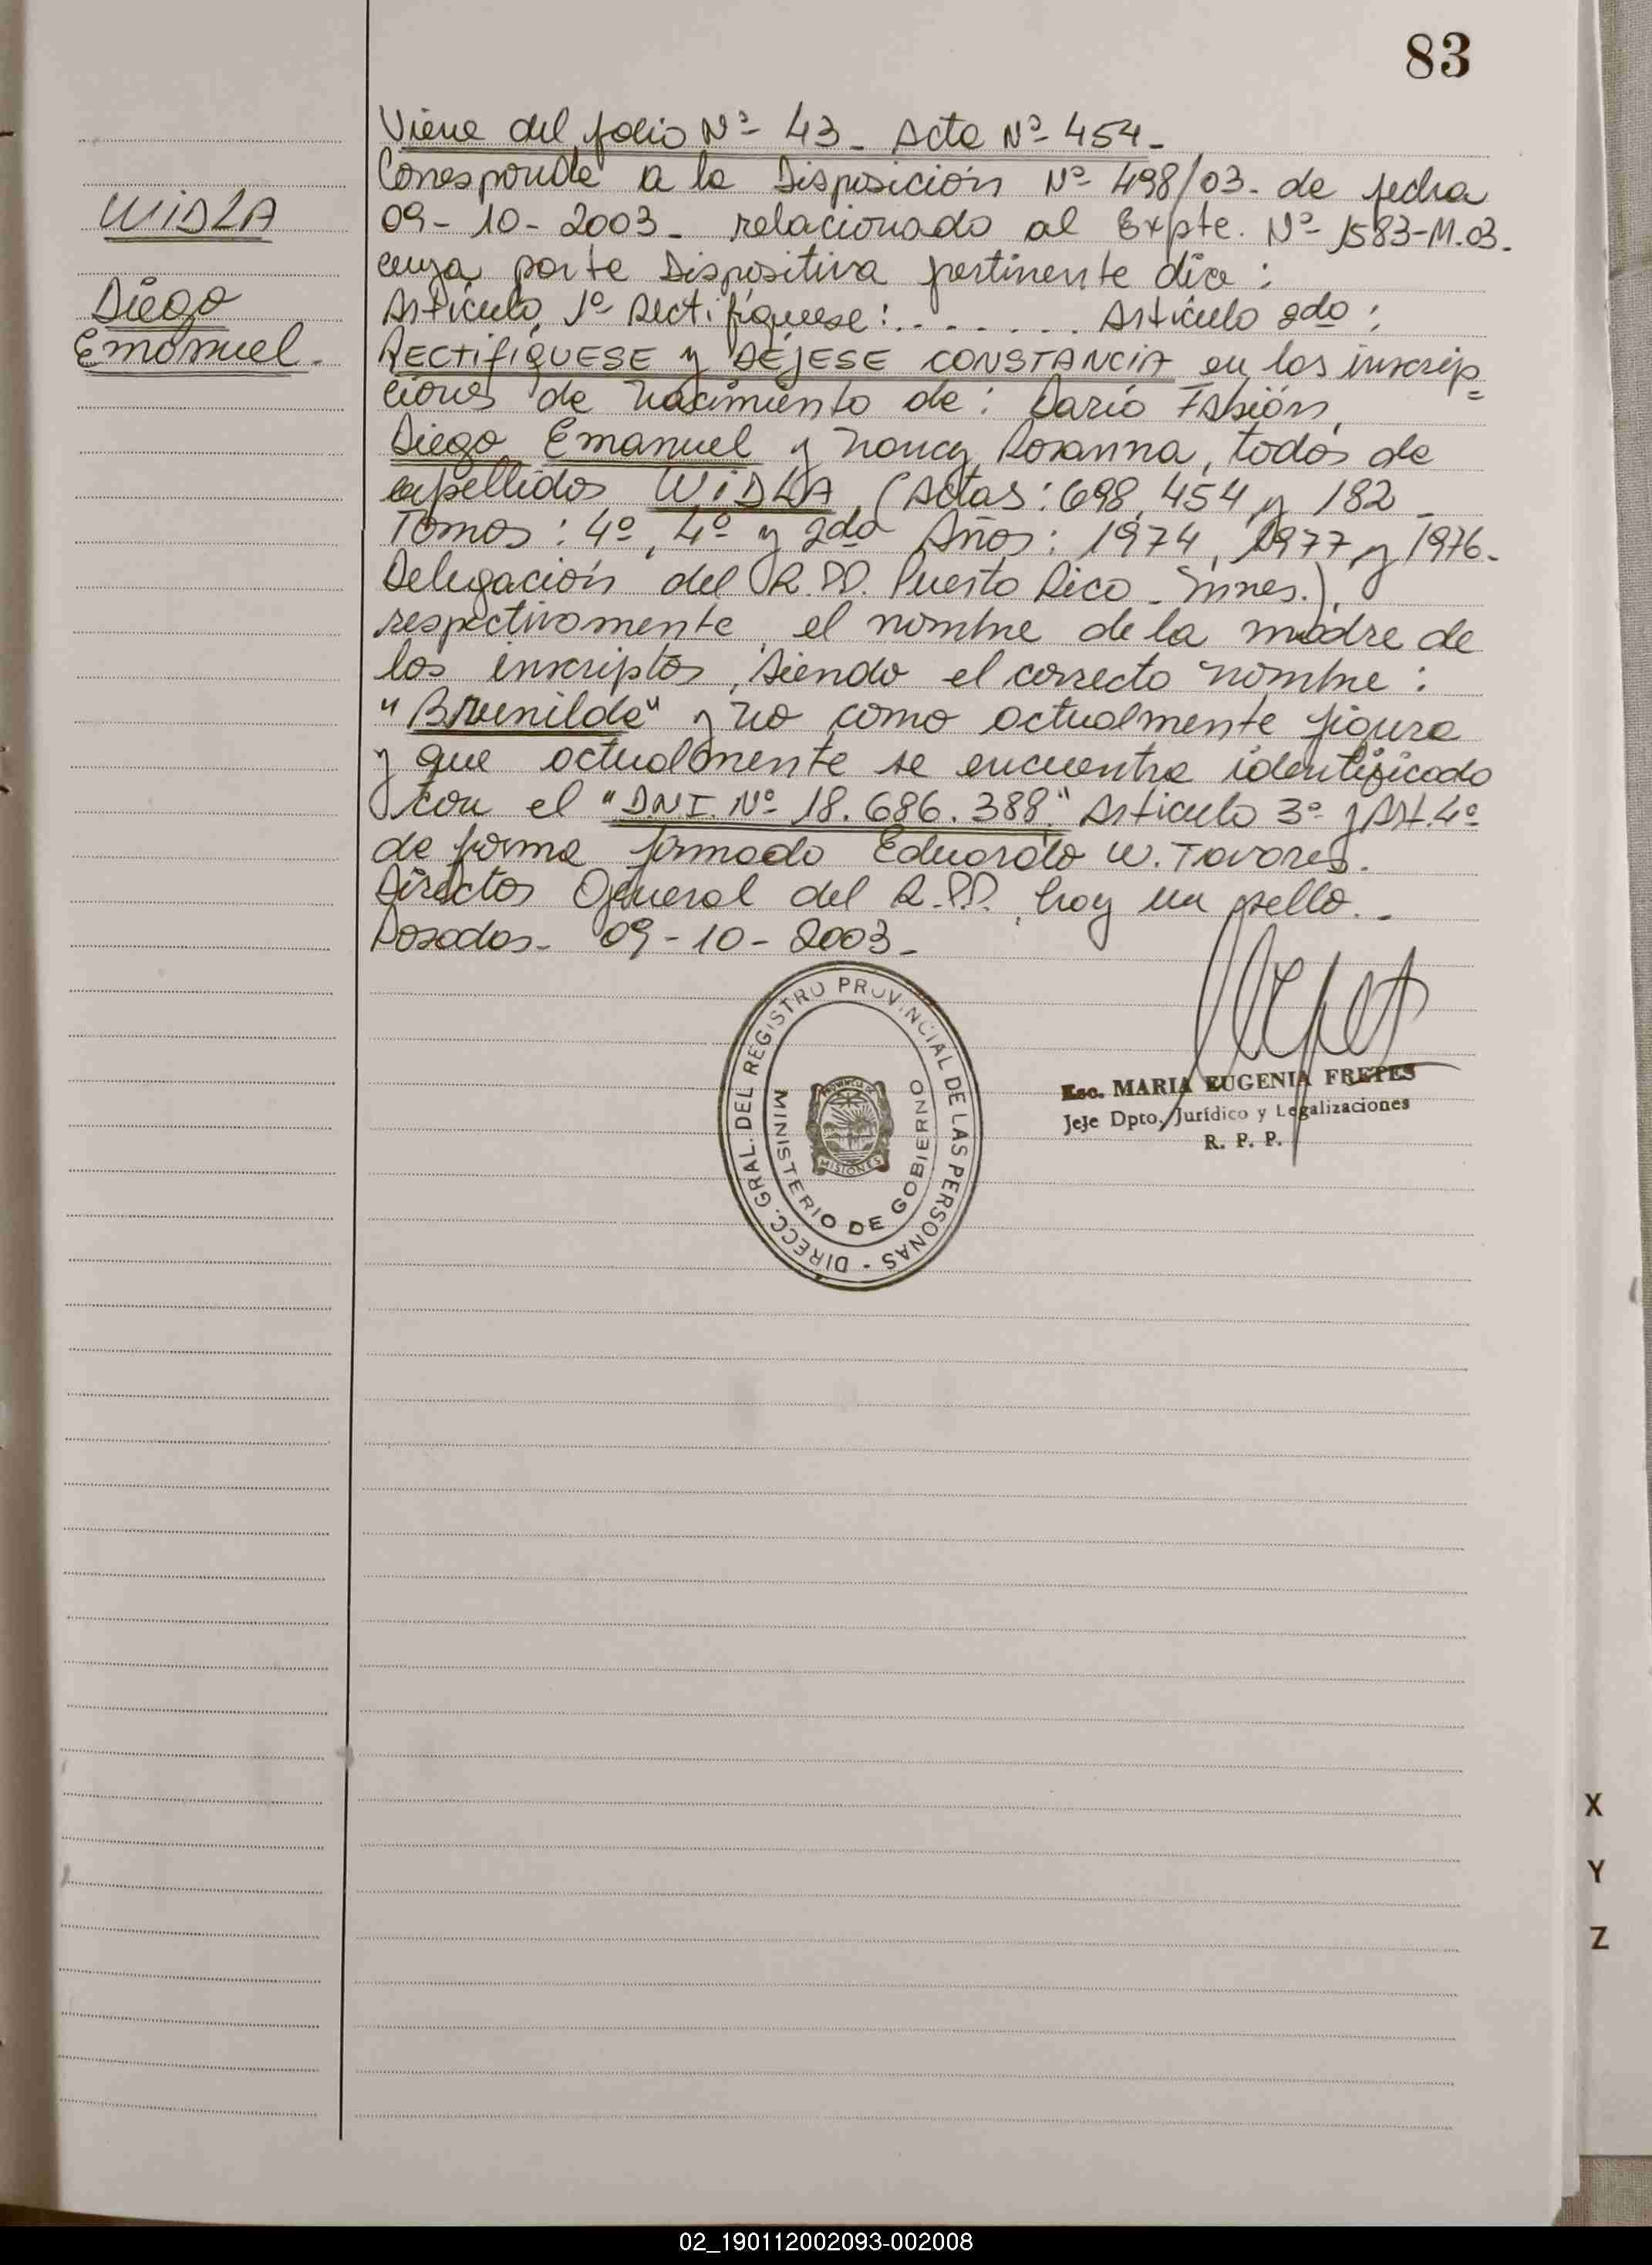 83
WiDLA
Diego
Emanuel.
Viene del folio Nº 43 - Acta Nº 454 -
Corresponde a la Disposición Nº 498/03. de fecha
09-10-2003 - relacionado al Expte. Nº 1583-M.03.
cuya parte Dispositiva pertinente dice:
Artículo 1º Rectifíquese: ........ Artículo 2do:
RECTIFIQUESE y DÉJESE CONSTANCIA en las inscrip=
ciones de nacimiento de: Darío Fabián,
Diego Emanuel y Nancy Rosanna, todos de
apellidos WiDLA, (Actas: 698, 454 y 182 -
Tomos: 4º, 4º y 2do Años: 1974, 1977 y 1976 -
Delegación del R.PP. Puerto Rico - Mnes.),
respectivamente, el nombre de la madre de
los inscriptos, siendo el correcto nombre:
"Brunilda" y no como actualmente figura
y que actualmente se encuentra identificada
con el "D.N.I. Nº 18.686.388." Artículo 3º y Art. 4º
de forma firmado Eduardo W. Tavares.
Director General del R.PP. hay un sello. -
Posadas - 09-10-2003 -
DIRECC. GRAL. DEL REGISTRO PROVINCIAL DE LAS PERSONAS -
MINISTERIO DE GOBIERNO
PROVINCIA DE
MISIONES
Esc. MARIA EUGENIA FRETES
Jefe Dpto. Jurídico y Legalizaciones
R. P. P.
X
Y
Z
02_190112002093-002008